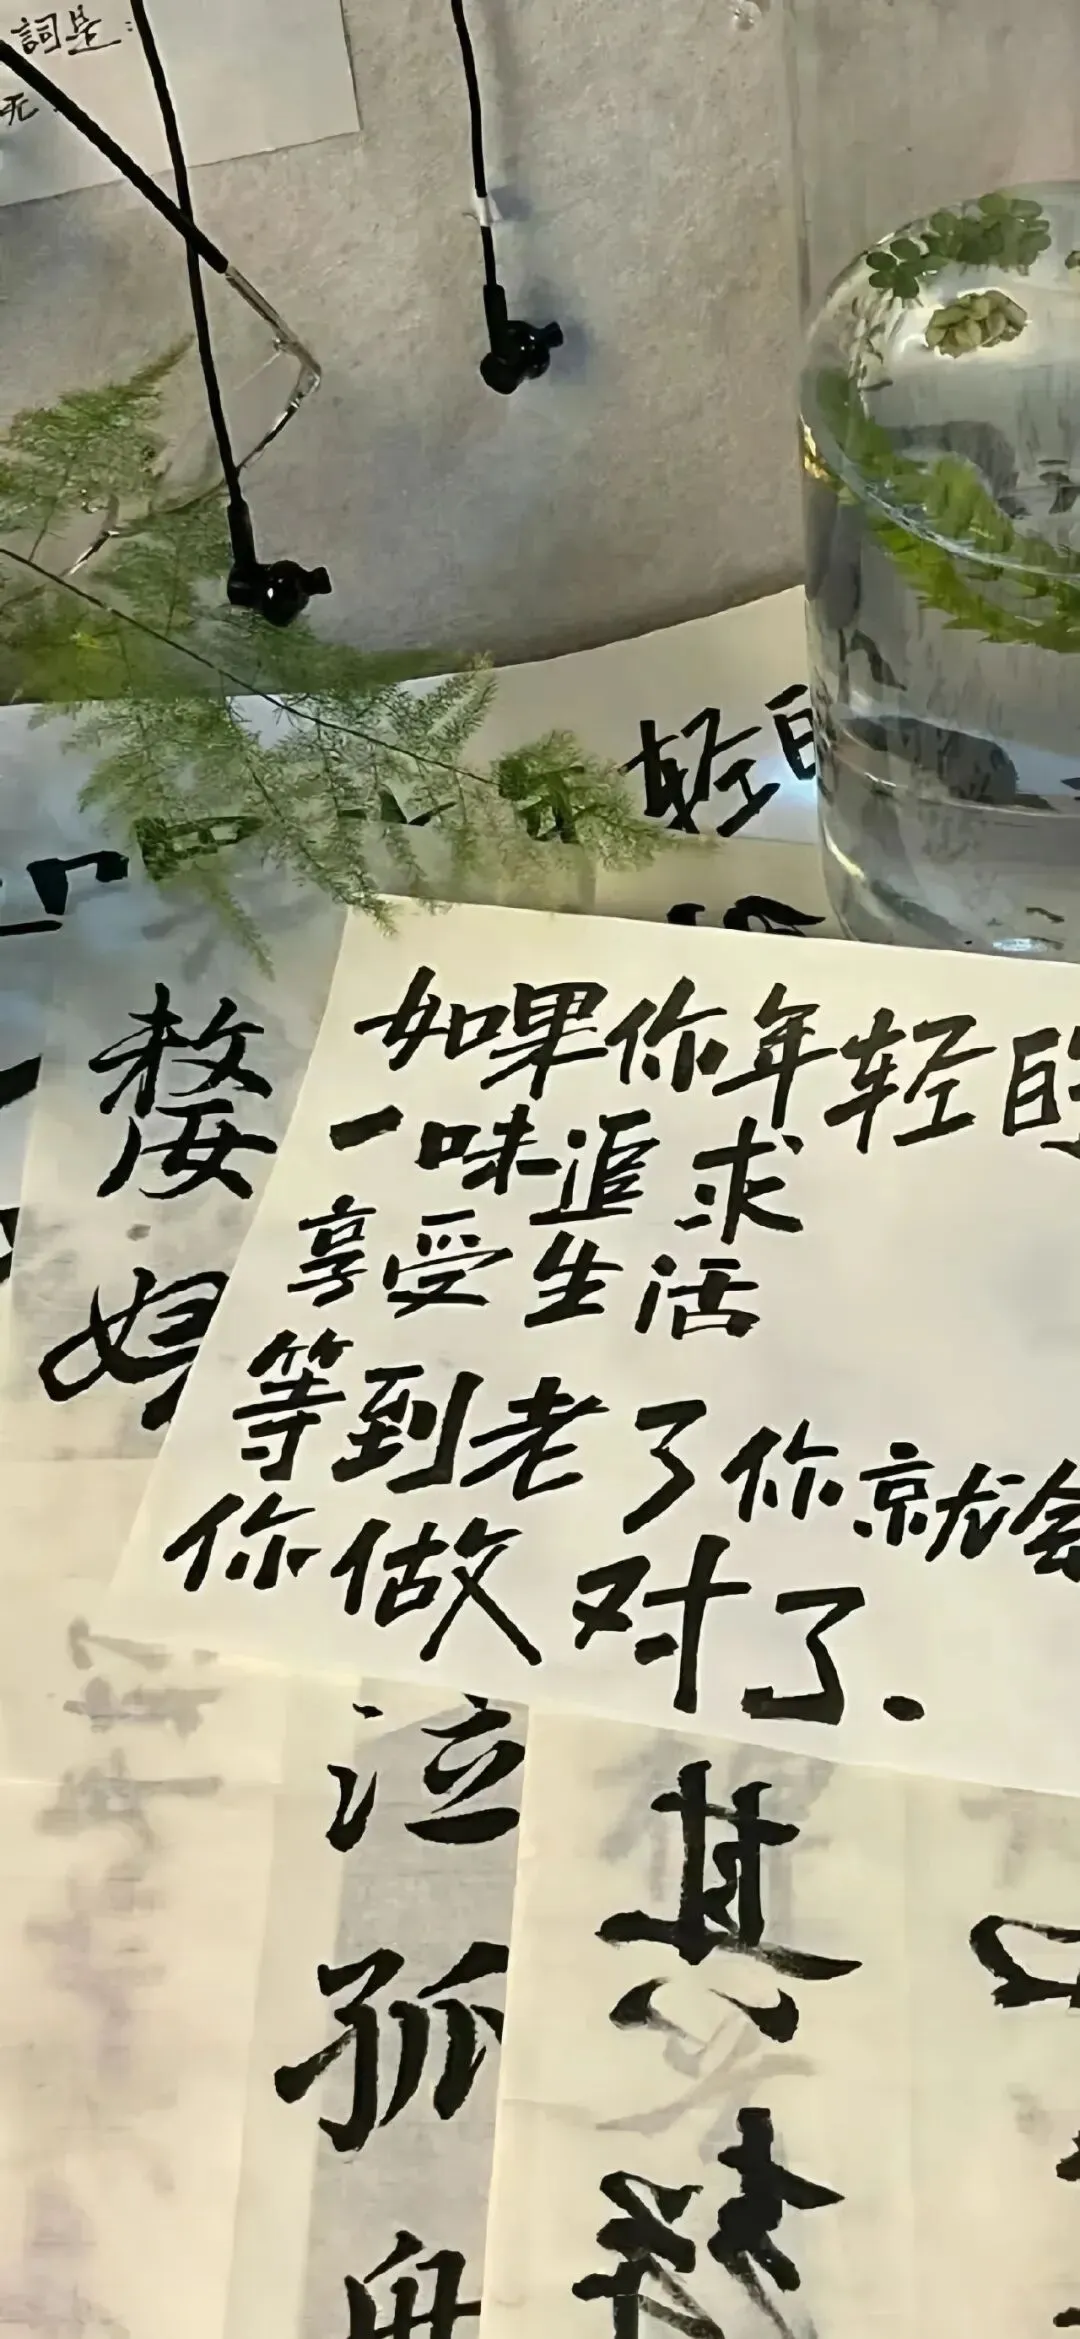 詞是:
无
轻的
如果你年轻的
一味追求
享受生活
等到老了你就会
你做对了.
嫠
妇
泣
孤
舟
其